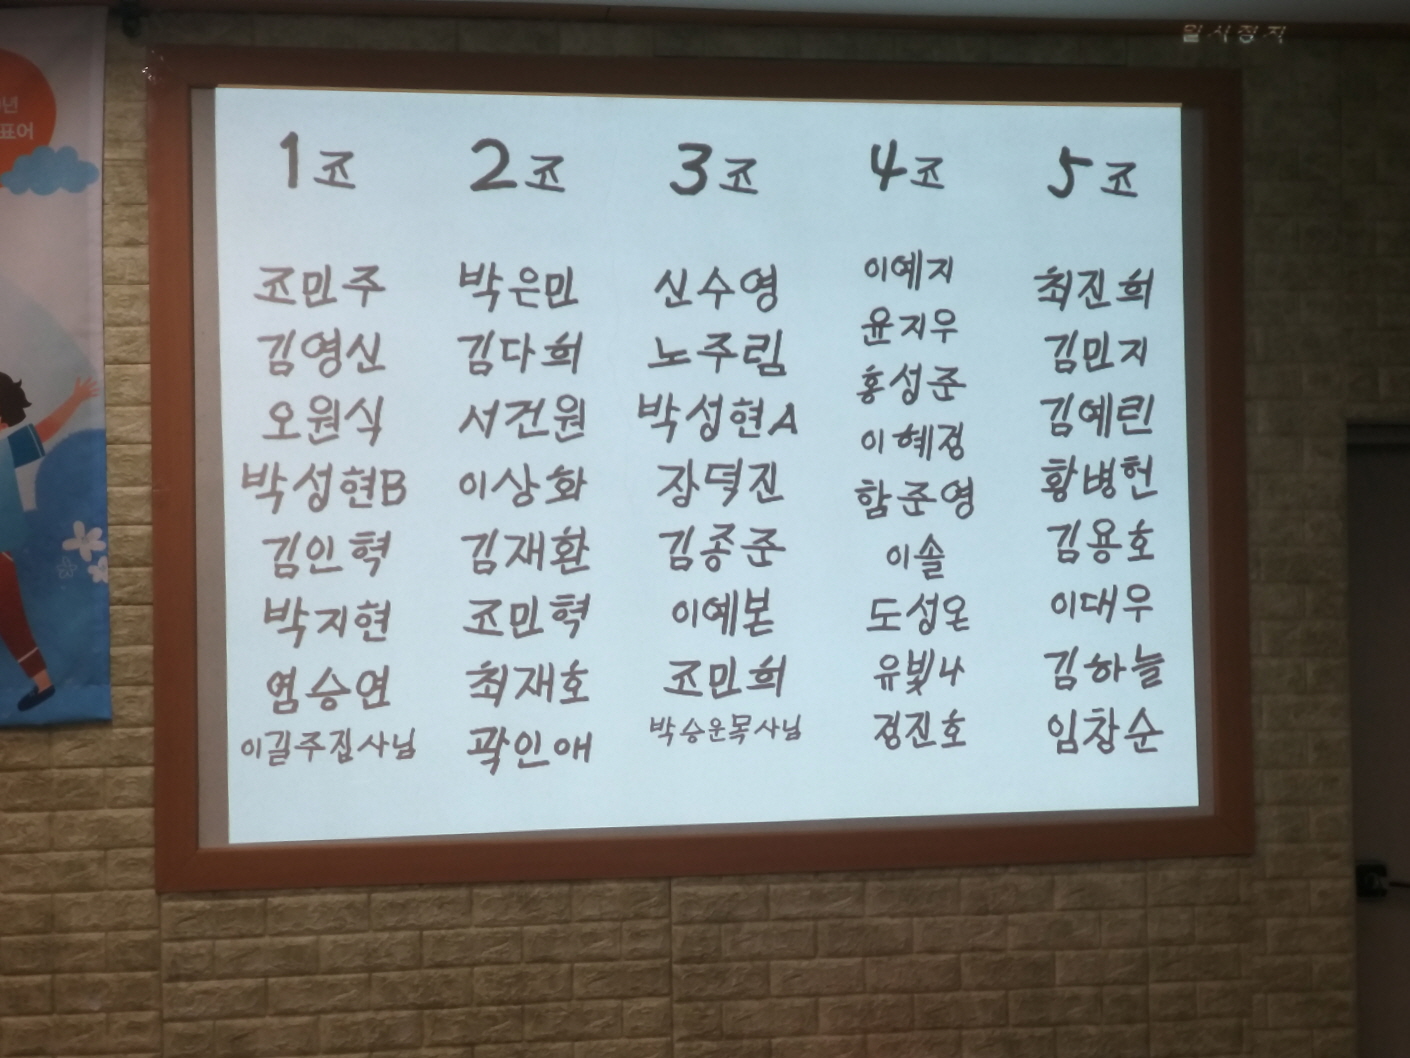 일시정지
년
표어
1조
조민주
김영신
오원식
박성현B
김인혁
박지현
염승연
이길주집사님
2조
박은민
김다희
서건원
이상화
김재환
조민혁
최재호
곽인애
3조
신수영
노주림
박성현A
장덕진
김종준
이예본
조민희
박승운목사님
4조
이예지
윤지우
홍성준
이혜정
함준영
이솔
도성온
유빛나
정진호
5조
최진희
김민지
김예린
황병헌
김용호
이대우
김하늘
임창순